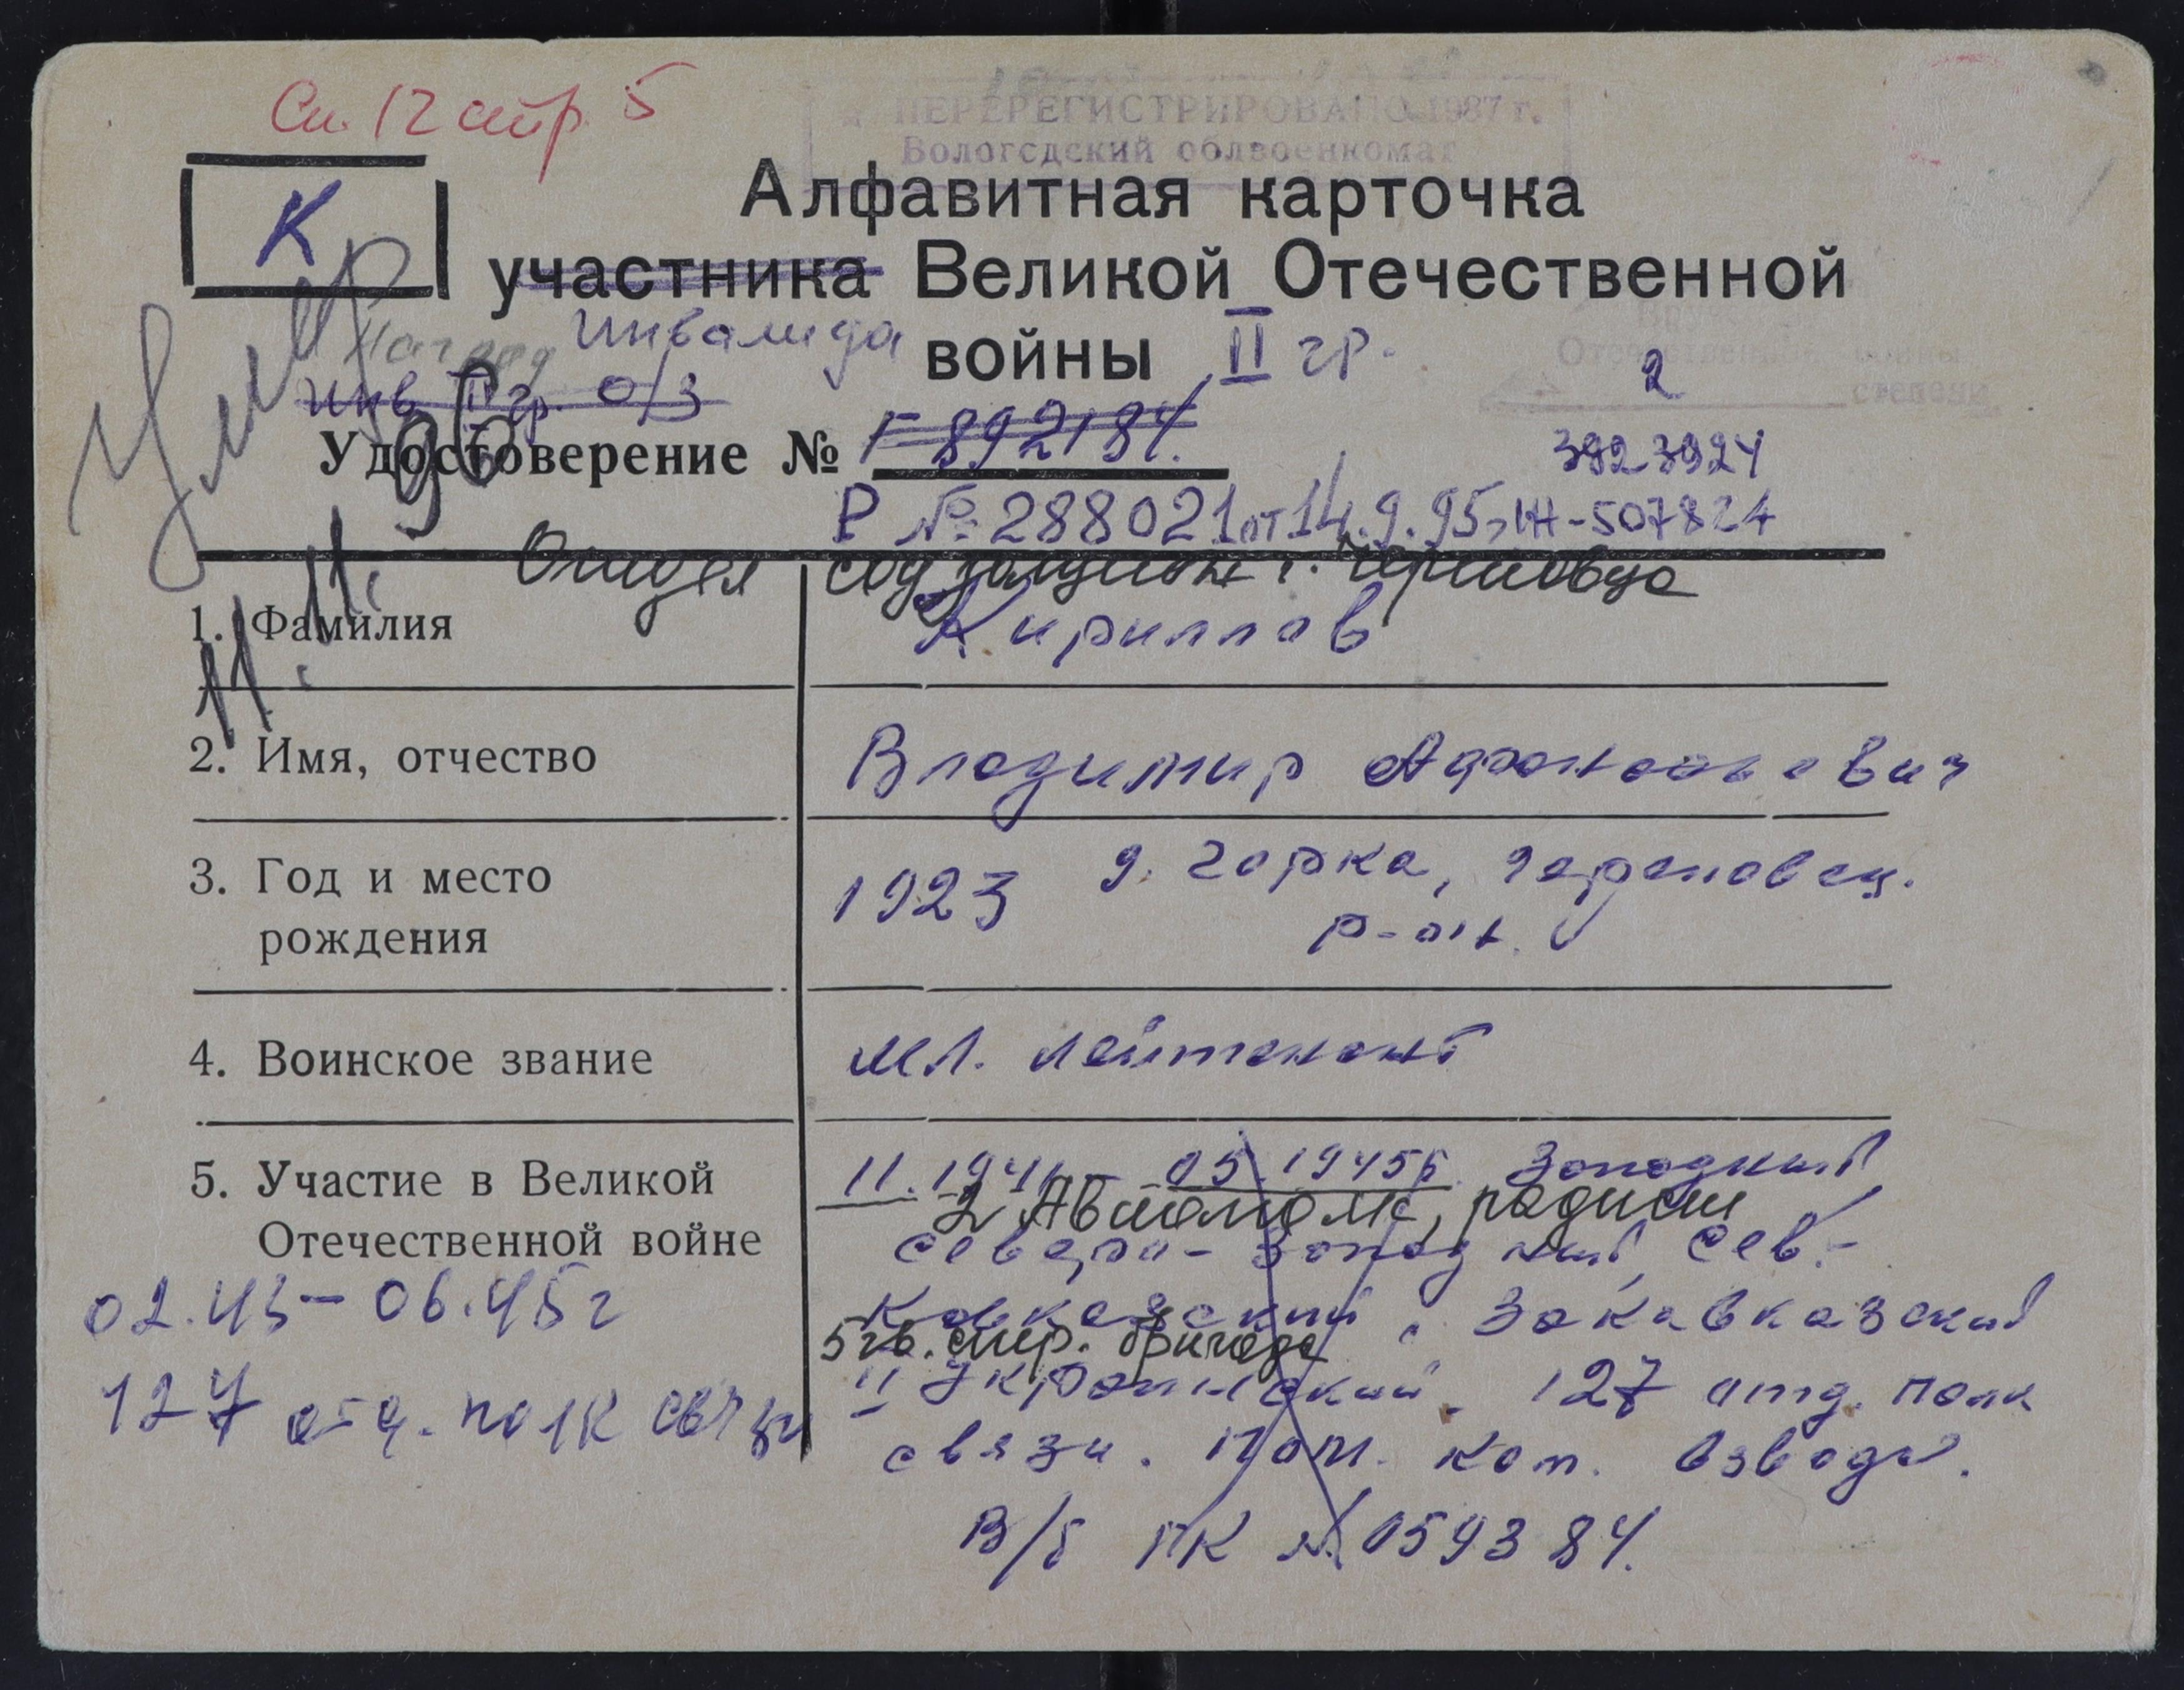 Сп. 12 стр. 5
ПЕРЕРЕГИСТРИРОВАНО 1987 г.
Вологодский облвоенкомат
К
Алфавитная карточка
участника Великой Отечественной
инвалида войны II гр.
Умер
инв II гр. О/З
2
Отечественной войны
степени
96
Удостоверение № Г-892184.
3923924
Р № 288021 от 14.9.95г
507824
11.11.
1. Фамилия
Кириллов
2. Имя, отчество
Владимир Афанасьевич
3. Год и место
рождения
1923 д. Горка, Череповец.
р-он.
4. Воинское звание
Мл. лейтенант
5. Участие в Великой
Отечественной войне
11.1941 - 05.1945г. Западный
2 Авиаполк, радист
Северо-Западный, Сев.-
Кавказский, Закавказский
5 гв. стр. бригада
II Украинский. 127 отд. полк
связи. Пом. ком. взвода.
В/б МК № 059384.
02.43 - 06.45г
127 отд. полк связи